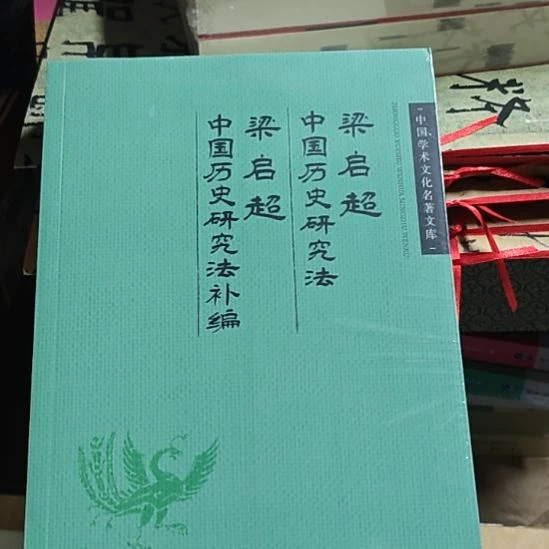 中国学术文化名著文库
ZHONGGUO XUESHU WENHUA MINGZHU WENKU
梁启超
中国历史研究法
梁启超
中国历史研究法补编